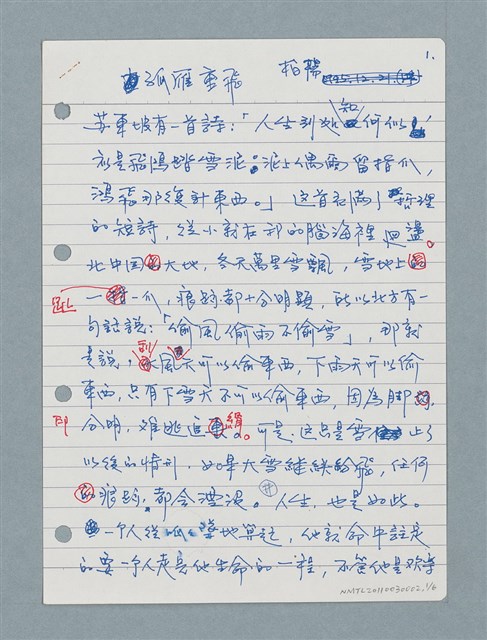 1.
孤雁南飛 柏楊
蘇東坡有一首詩:「人生到處知何似,
應是飛鴻踏雪泥;泥上偶爾留指爪,
鴻飛那復計東西。」這首充滿了哲理
的短詩,從小就在我的腦海裡迴盪。
北中國大地,冬天萬里雪飄,雪地上
一趾一爪,痕跡都十分明顯,所以北方有一
句話說:「偷風偷雨不偷雪」,那就
是說,刮風天可以偷東西,下雨天可以偷
東西,只有下雪天不可以偷東西,因為腳印
分明,難逃追緝。可是,這只是雪止了
以後的情形,如果大雪繼續紛飛,任何
痕跡,都會湮沒。人生,也是如此。
一個人從墓地算起,他就命中註定
的要一個人走完他生命的一程,不管他是歡喜
NMTL20110030002, 1/6